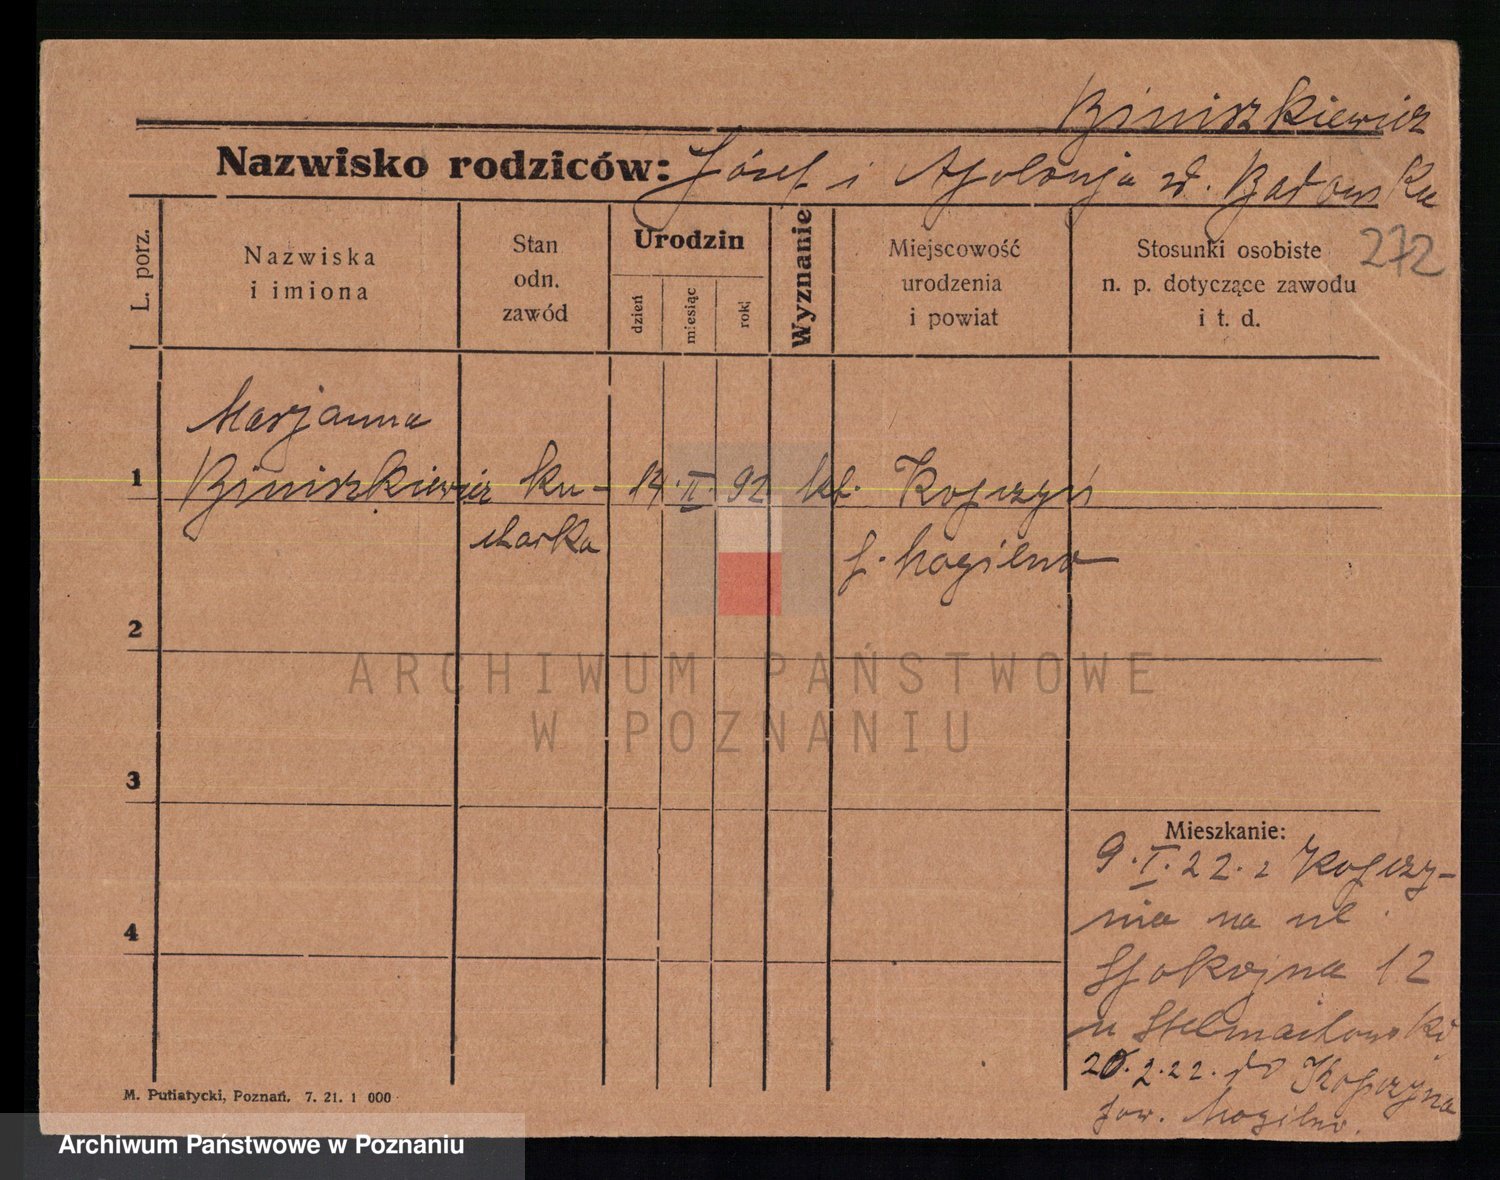 Biniszkiewicz
Nazwisko rodziców: Józef i Apolonja z d. Badowska
272
L. porz.
Nazwiska
i imiona
Stan
odn.
zawód
Urodzin
dzień
miesiąc
rok
Wyznanie
Miejscowość
urodzenia
i powiat
Stosunki osobiste
n. p. dotyczące zawodu
i t. d.
Marjanna
1 Biniszkiewicz ku- 14. II. 92 kt. Kopczyń
charka p. Mogilno
2
3
4
Mieszkanie:
9. I. 22. z Kopczy-
nia na ul.
Spokojna 12
u Stelmachowski
20.2.22. do Kopczyna
pow. Mogilno.
M. Putiatycki, Poznań. 7. 21. 1 000
ARCHIWUM PAŃSTWOWE
W POZNANIU
Archiwum Państwowe w Poznaniu